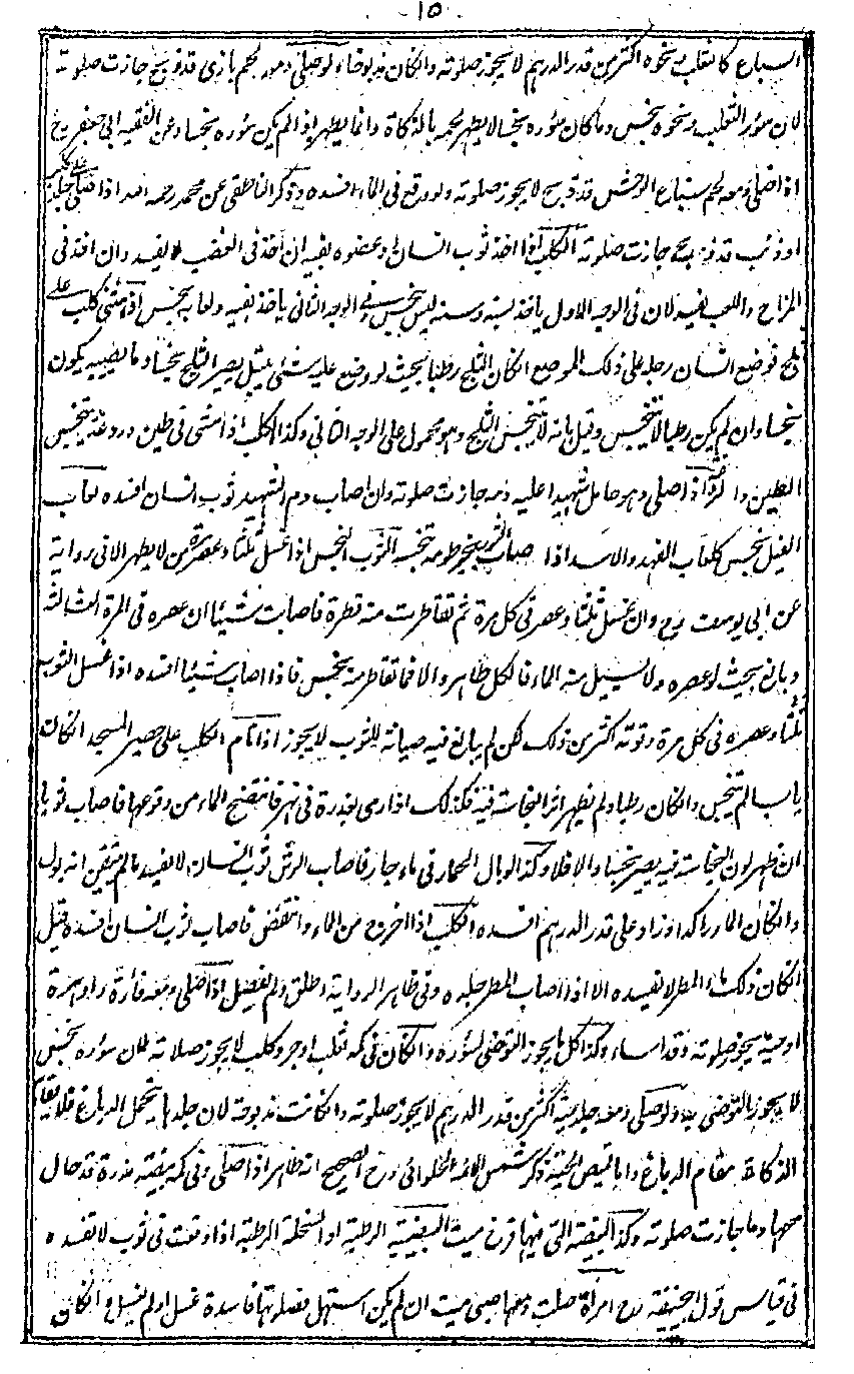 ١٥
السباع كالثعلب ونحوه اكثر من قدر الدرهم لا يجوز صلوته وانكان مذبوحا ولو صلى ومعه لحم بازى قد ذبح جازت صلوته
لان سؤر الثعلب ونحوه نجس وما كان سؤره نجسا لا يطهر لحمه بالذكاة وانما يطهر اذا لم يكن سؤره نجسا وعن الفقيه ابى جعفر رح
اذا صلى ومعه لحم سباع الوحش قد ذبح لا يجوز صلوته ولو وقع فى الماء افسده وذكر الناطقى عن محمد رحمه الله اذا صلى على جلد كلب
او ذئب قد ذبح جازت صلوته الكلب اذا اخذ ثوب انسان او عضوه بفيه ان اخذ فى الغضب لا يفسد وان اخذ فى
المزاح واللعب يفسد لان فى الوجه الاول ياخذ بسنه وسنه ليس بنجس وفى الوجه الثانى ياخذ بفيه ولعابه نجس اذا مشى كلب على
ثلج فوضع انسان رجله على ذلك الموضع انكان الثلج رطبا بحيث لو وضع عليه شئ يبتل يصير الثلج نجسا وما يصيبه يكون
نجسا وان لم يكن رطبا لا يتنجس وقيل بانه لا يتنجس الثلج وهو محمول على الوجه الثانى وكذا الكلب اذا مشى فى طين وردغة يتنجس
الطين والردغة اذا صلى وهو حامل شهيدا عليه دمه جازت صلوته وان اصاب دم الشهيد ثوب انسان افسده لعاب
الفيل نجس كلعاب الفهد والاسد اذا اصاب الثوب بخرطومه نجسه الثوب النجس اذا غسل ثلثا وعصر مرة لا يطهر الا فى رواية
عن ابى يوسف رح وان غسل ثلثا وعصر فى كل مرة ثم تقاطرت منه قطرة فاصابت شيئا ان عصره فى المرة الثالثة
وبالغ بحيث لو عصره لا يسيل منه الماء فالكل طاهر والا فما تقاطر منه نجس فاذا اصاب شيئا افسده اذا غسل الثوب
ثلثا وعصره فى كل مرة وقوته اكثر من ذلك لكن لم يبالغ فيه صيانة للثوب لا يجوز اذا نام الكلب على حصير المسجد انكان
يابسا لم يتنجس وانكان رطبا ولم يظهر اثر النجاسة فيه فكذلك اذا رمى بعذرة فى نهر فانتضح الماء من وقوعها فاصاب ثوبا
ان ظهر لون النجاسة فيه يصير نجسا والا فلا وكذا لو بال الحمار فى ماء جار فاصاب الرش ثوب انسان لا يفسد ما لم يتيقن انه بول
وانكان الماء راكدا وزاد على قدر الدرهم افسده الكلب اذا خرج من الماء وانتفض فاصاب ثوب انسان افسده قيل
انكان ذلك ماء المطر لا يفسده الا اذا اصاب المطر جلده وفى ظاهر الرواية اطلق ولم يفصل اذا صلى ومعه فأرة او هرة
او حية يجوز صلوته وقد اساء وكذا كل ما يجوز التوضى بسؤره وانكان فى كمه ثعلب او جرو كلب لا يجوز صلاته لان سؤره نجس
لا يجوز التوضى به ولو صلى ومعه جلد حية اكثر من قدر الدرهم لا يجوز صلوته وانكانت مذبوحة لان جلدها لا يتحمل الدباغ فلا يقام
الذكاة مقام الدباغ واما قميص الحية ذكر شمس الائمة الحلوائى رح الصحيح انه طاهر اذا صلى وفى كمه بيضة مذرة قد حال
محها دما جازت صلوته وكذا البيضة التى فيها فرخ ميت البيضة الرطبة او السخلة الرطبة اذا وقعت فى ثوب لا تفسده
فى قياس قول ابى حنيفة رح امرأة صلت ومعها صبى ميت ان لم يكن استهل فصلوتها فاسدة غسل او لم يغسل وانكان